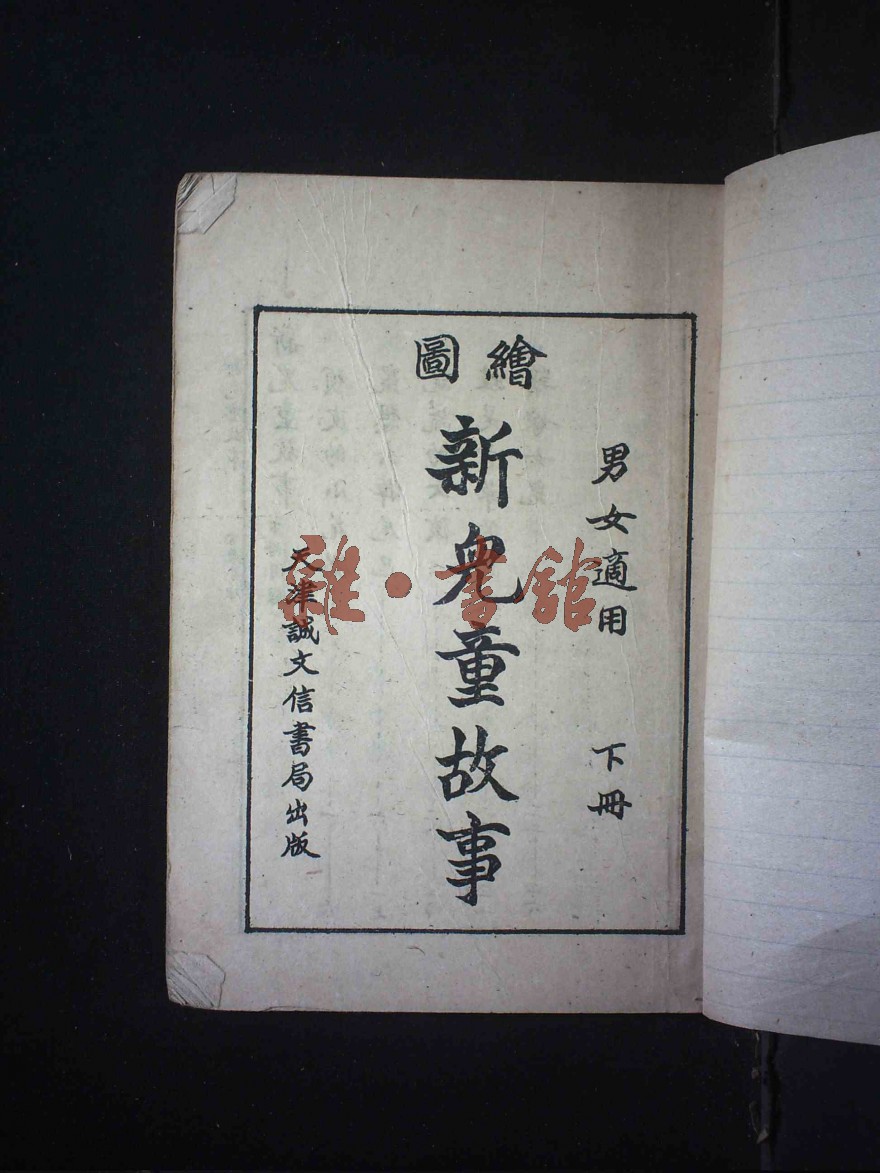 男女適用 下冊
繪圖
新兒童故事
天津誠文信書局出版
雜·書館